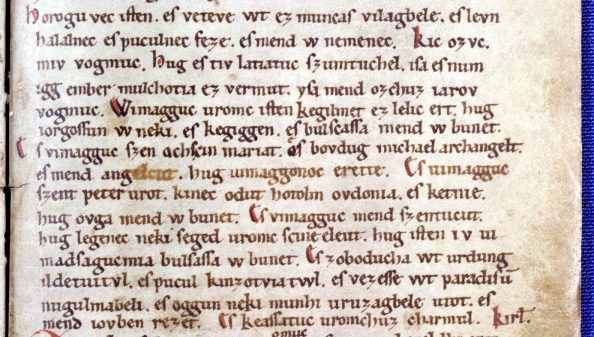 horogu vec isten. es veteve wt ez muncas vilagbele. es levn
halalnec es puculnec feze. es mend w nemenec. Kic ozvc.
miv vogmuc. hug es tiv latiatuc szumtuchel. isa es num
igg ember mulchotia ez vermut. ysa mend ozchuz iarov
vogmuc. Wimagguc uromc isten kegilmet ez lelic ert. hug
iorgossun w neki. es kegiggen. es bulsassa mend w bunet.
Es vimagguc szen achscin mariat. es bovdug michael archangelt.
es mend angelcut. hug uimaggonoc erette. Es uimagguc
szent peter urot. kinec odut hotolm ovdonia. es ketnie.
hug ovga mend w bunet. Es vimagguc mend szentucut.
hug legenec neki seged uromc scine eleut. hug isten iv ui
madsaguemia bulsassa w bunet. Es zoboducha wt urdung
ildetuitvl. es pucul kinzotviatwl. es vezesse wt paradisū
nugulmabeli. es oggun neki munhi uruzagbele utot. es
mend iovben rezet. Es keassatuc uromchuz charmul. kirł.